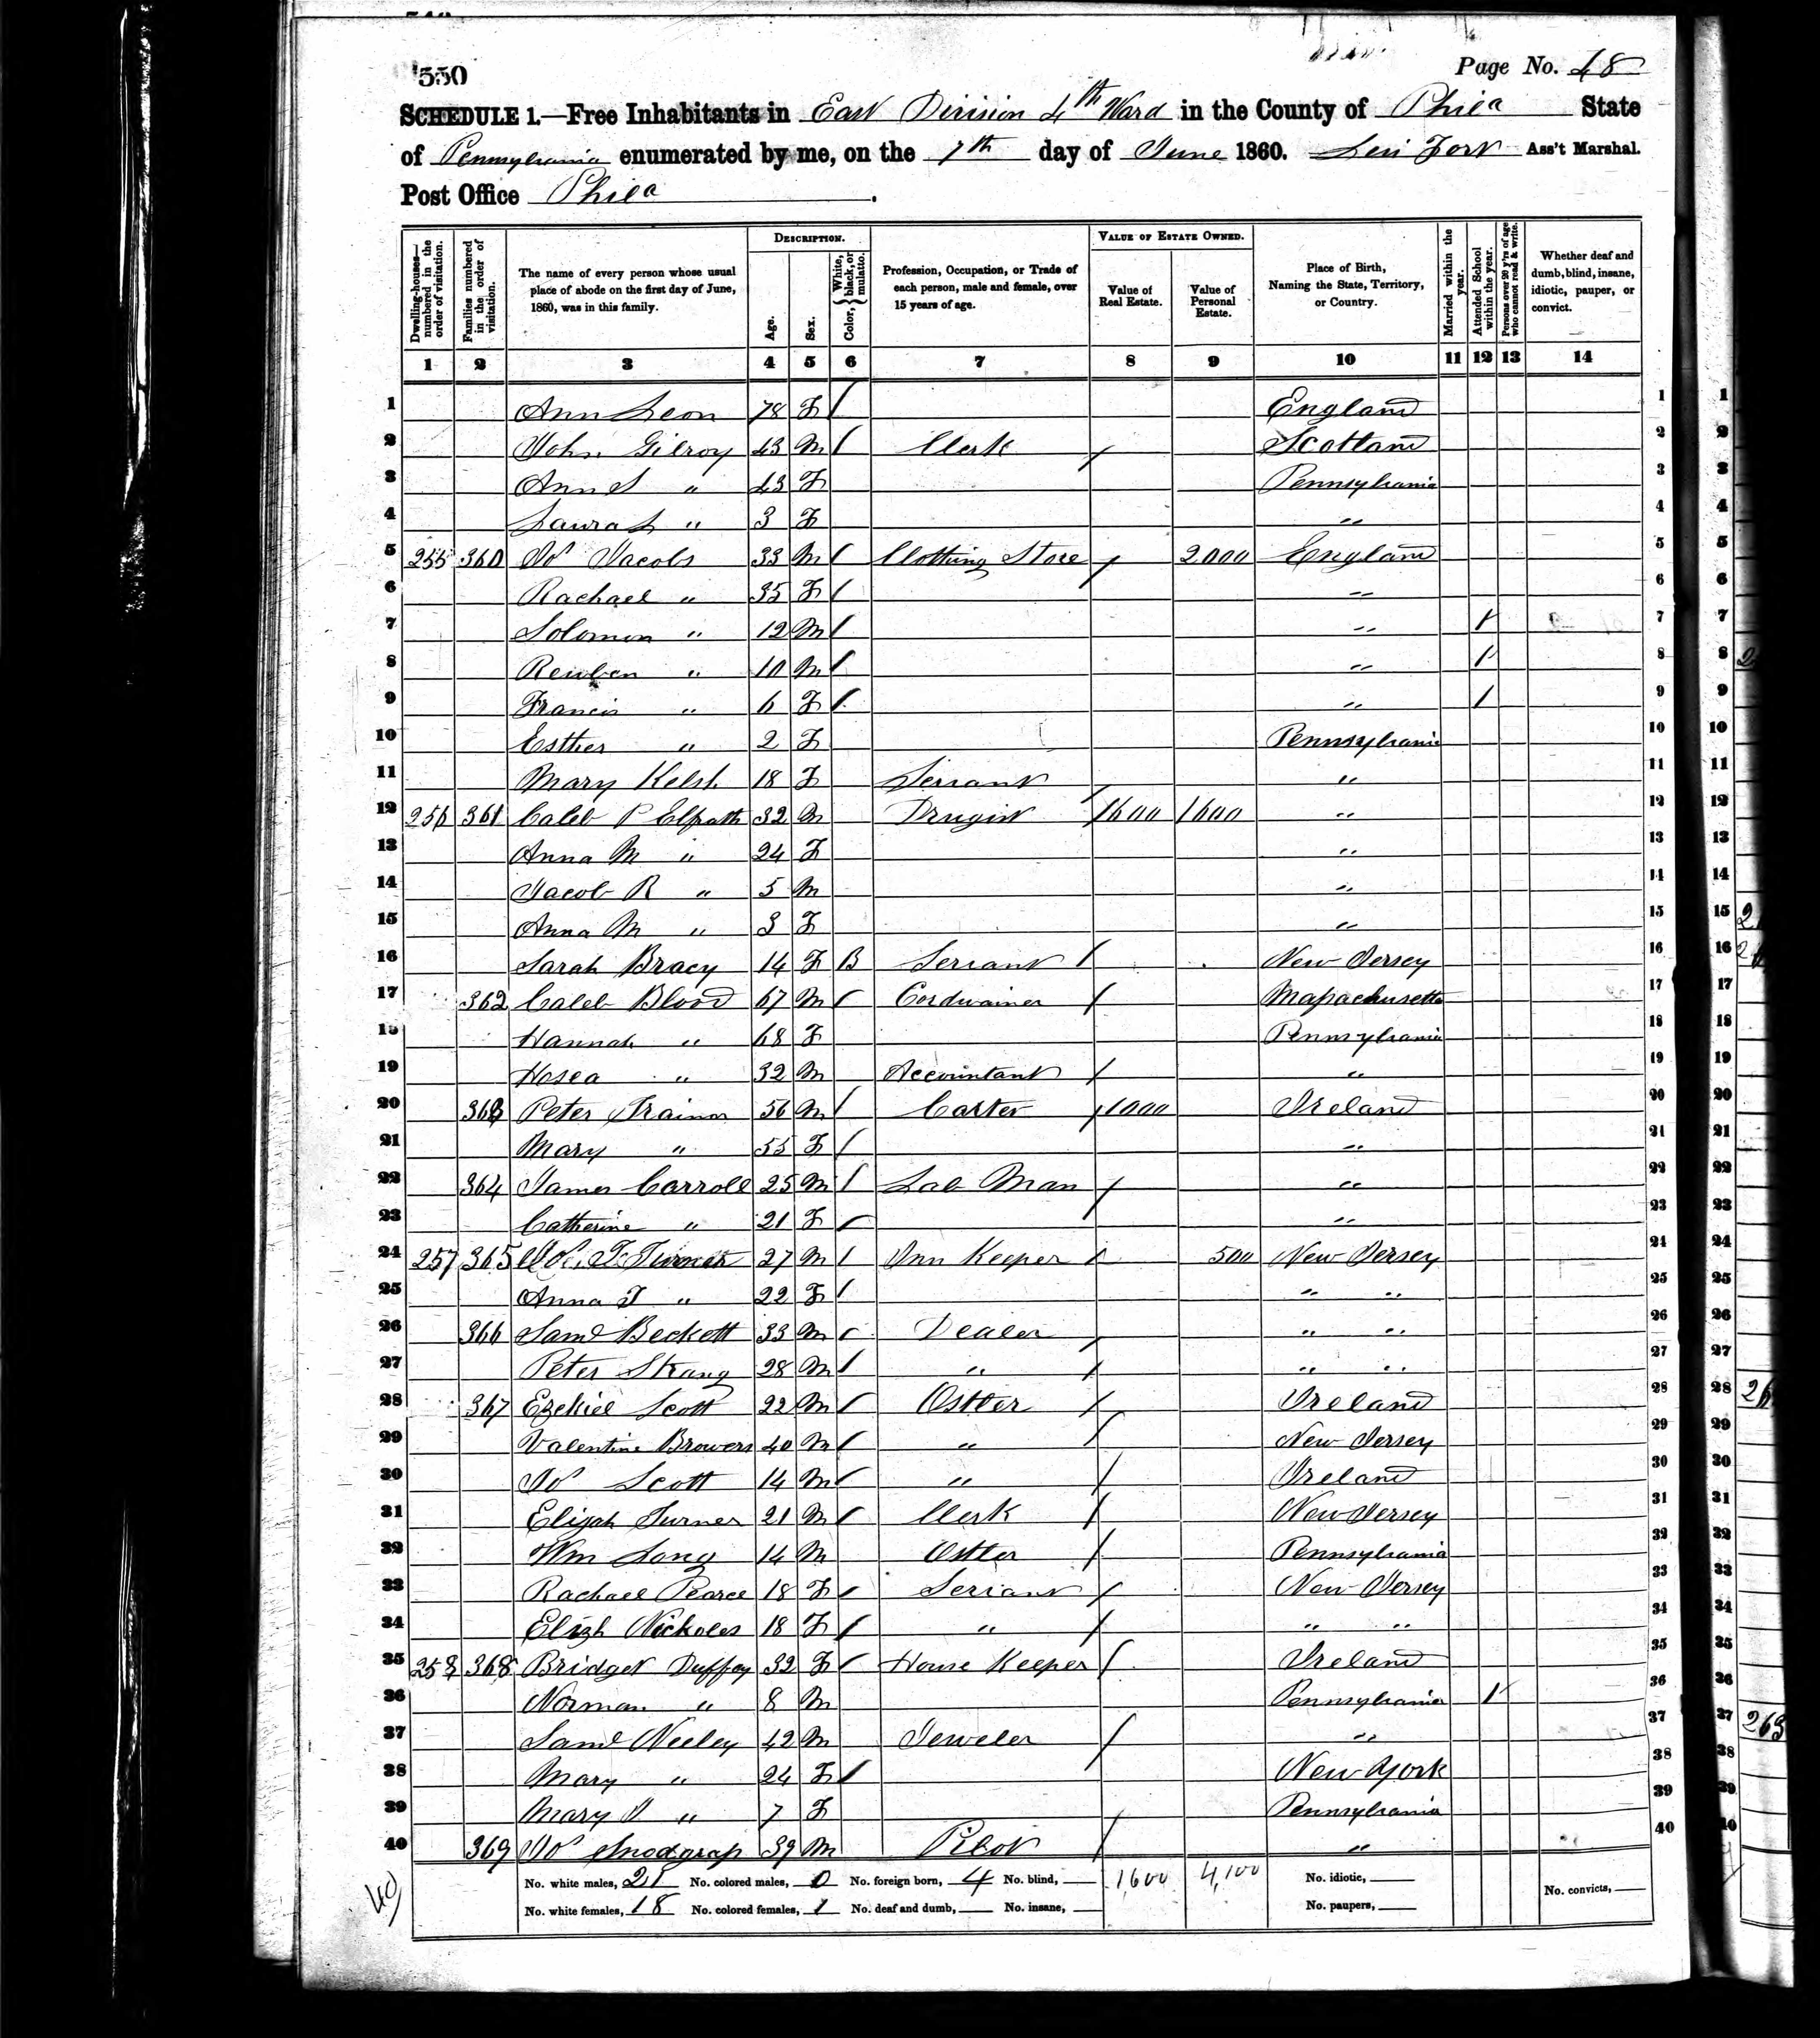 550
Page No. 48
SCHEDULE 1.—Free Inhabitants in East Division 4th Ward in the County of Phila State
of Pennsylvania enumerated by me, on the 7th day of June 1860. Ass't Marshal.
Post Office Phila.
Dwelling-houses—numbered in the order of visitation.
Families numbered in the order of visitation.
The name of every person whose usual place of abode on the first day of June, 1860, was in this family.
DESCRIPTION.
Age.
Sex.
Color, { White, black, or mulatto.
Profession, Occupation, or Trade of each person, male and female, over 15 years of age.
VALUE OF ESTATE OWNED.
Value of Real Estate.
Value of Personal Estate.
Place of Birth, Naming the State, Territory, or Country.
Married within the year.
Attended School within the year.
Persons over 20 y'rs of age who cannot read & write.
Whether deaf and dumb, blind, insane, idiotic, pauper, or convict.
1 2 3 4 5 6 7 8 9 10 11 12 13 14
1 Ann Leon 78 F / England 1
2 John Gilroy 43 M / Clerk / Scotland 2
3 Ann S " 43 F Pennsylvania 3
4 Laura L " 3 F " 4
5 255 360 Jos Jacobs 33 M / Clothing Store / 2000 England 5
6 Rachael " 35 F / " 6
7 Solomon " 12 M / " 1 7
8 Reuben " 10 M / " 1 8
9 Francis " 6 F / " 1 9
10 Esther " 2 F Pennsylvania 10
11 Mary Kelsh 18 F Servant / " 11
12 256 361 Caleb P 32 M Drugist 1600 1600 " 12
13 Anna M " 24 F " 13
14 Jacob R " 5 M " 14
15 Anna M " 3 F " 15
16 Sarah Bracy 14 F B Servant / New Jersey 16
17 362 Caleb Blood 67 M / Cordwainer / Massachusetts 17
18 Hannah " 68 F Pennsylvania 18
19 Hosea " 32 M Accountant / " 19
20 363 Peter Trainor 56 M / Carter / 1000 Ireland 20
21 Mary " 55 F / " 21
22 364 James Carroll 25 M / Lab Man / " 22
23 Catherine " 21 F / " 23
24 257 365 Turner 27 M / Inn Keeper / 500 New Jersey 24
25 Anna T " 22 F / " " 25
26 366 Saml Beckett 33 M / Dealer / " " 26
27 Peter Strang 28 M / " / " " 27
28 367 Ezekiel Scott 22 M / Ostler / Ireland 28
29 Valentine Browers 40 M / " / New Jersey 29
30 Jos Scott 14 M / " / Ireland 30
31 Elijah Turner 21 M / Clerk / New Jersey 31
32 Wm Long 14 M Ostler / Pennsylvania 32
33 Rachael Pearce 18 F / Servant / New Jersey 33
34 Elizh Nickoles 18 F / " / " " 34
35 258 368 Bridget Duffey 32 F / House Keeper / Ireland 35
36 Norman " 8 M Pennsylvania 1 36
37 Saml Neeley 42 M Jeweler / " 37
38 Mary " 24 F / New York 38
39 Mary J " 7 F Pennsylvania 39
40 369 Jos Snodgrass 39 M Pilot / " 40
No. white males, 21 No. colored males, 0 No. foreign born, 4 No. blind, 1,600 4,100 No. idiotic,
No. white females, 18 No. colored females, 1 No. deaf and dumb, No. insane, No. paupers, No. convicts,